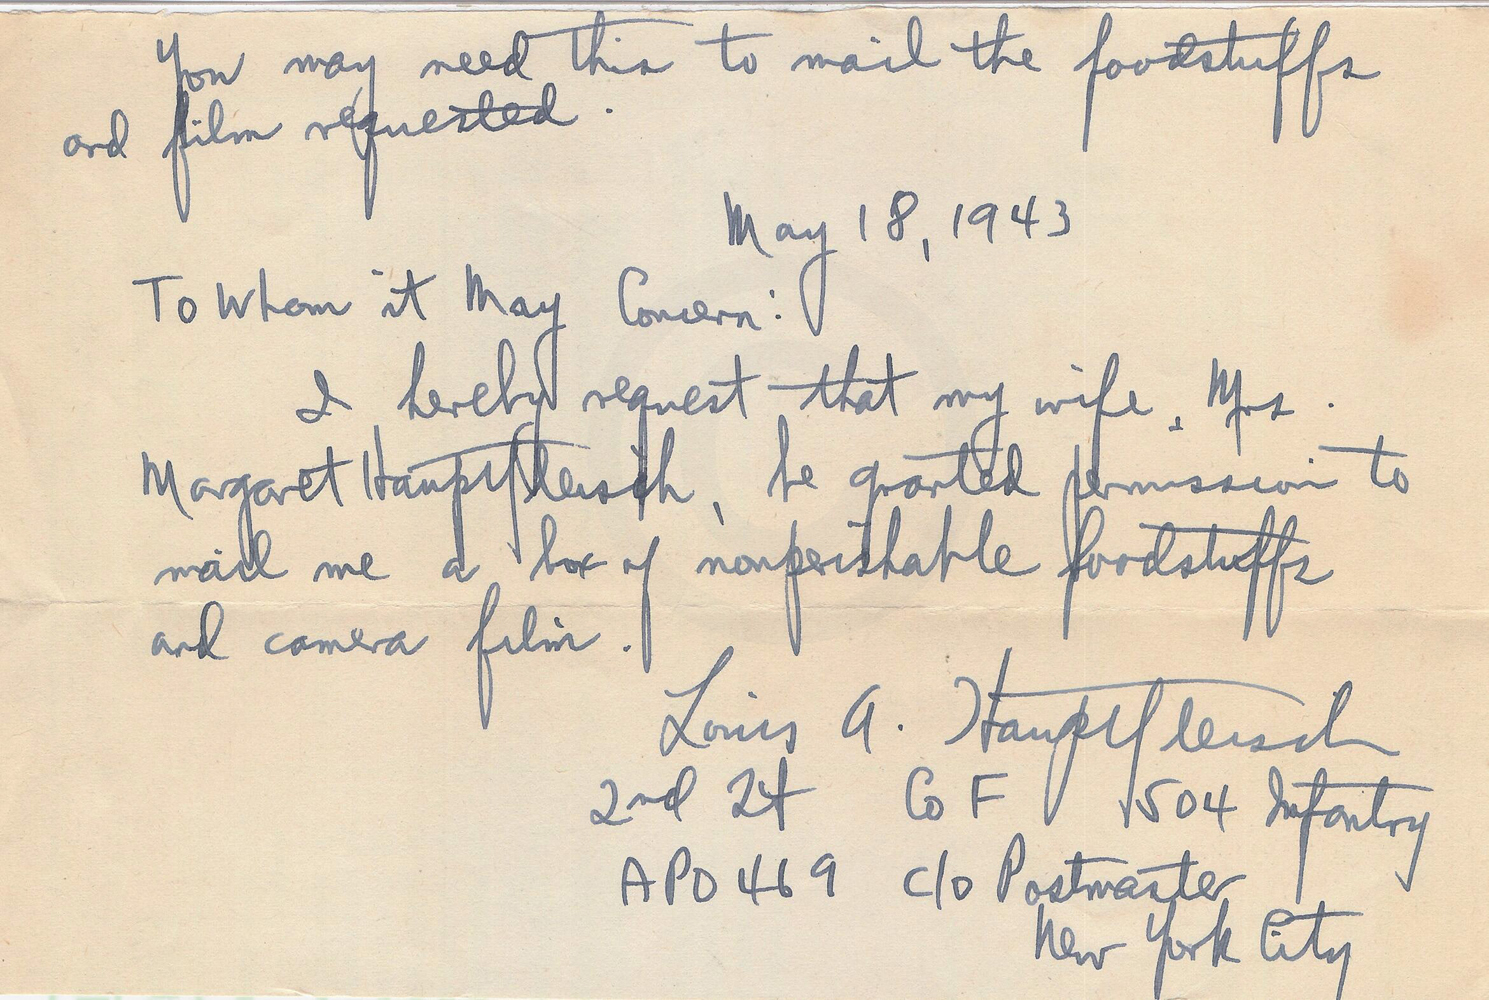 You may need this to mail the foodstuffs
and film requested.
May 18, 1943
To Whom it May Concern:
I hereby request that my wife, Mrs.
Margaret Hauptfleisch, be granted permission to
mail me a box of nonperishable foodstuffs
and camera film.
Louis A. Hauptfleisch
2nd Lt Co F 504 Infantry
APO 469 c/o Postmaster
New York City